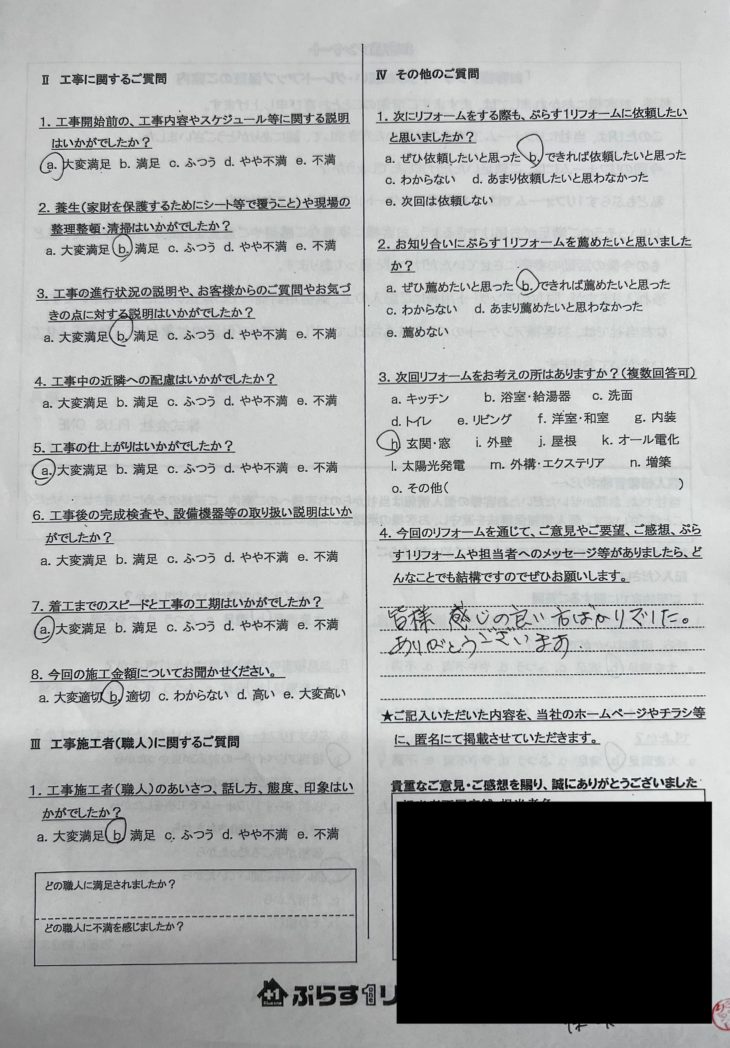 Ⅱ 工事に関するご質問
1. 工事開始前の、工事内容やスケジュール等に関する説明
はいかがでしたか？
a. 大変満足 b. 満足 c. ふつう d. やや不満 e. 不満
2. 養生(家財を保護するためにシート等で覆うこと)や現場の
整理整頓・清掃はいかがでしたか？
a. 大変満足 b. 満足 c. ふつう d. やや不満 e. 不満
3. 工事の進行状況の説明や、お客様からのご質問やお気づ
きの点に対する説明はいかがでしたか？
a. 大変満足 b. 満足 c. ふつう d. やや不満 e. 不満
4. 工事中の近隣への配慮はいかがでしたか？
a. 大変満足 b. 満足 c. ふつう d. やや不満 e. 不満
5. 工事の仕上がりはいかがでしたか？
a. 大変満足 b. 満足 c. ふつう d. やや不満 e. 不満
6. 工事後の完成検査や、設備機器等の取り扱い説明はいか
がでしたか？
a. 大変満足 b. 満足 c. ふつう d. やや不満 e. 不満
7. 着工までのスピードと工事の工期はいかがでしたか？
a. 大変満足 b. 満足 c. ふつう d. やや不満 e. 不満
8. 今回の施工金額についてお聞かせください。
a. 大変適切 b. 適切 c. わからない d. 高い e. 大変高い
Ⅲ 工事施工者(職人)に関するご質問
1. 工事施工者(職人)のあいさつ、話し方、態度、印象はい
かがでしたか？
a. 大変満足 b. 満足 c. ふつう d. やや不満 e. 不満
どの職人に満足されましたか？
どの職人に不満を感じましたか？
Ⅳ その他のご質問
1. 次にリフォームをする際も、ぷらす1リフォームに依頼したい
と思いましたか？
a. ぜひ依頼したいと思った b. できれば依頼したいと思った
c. わからない d. あまり依頼したいと思わなかった
e. 次回は依頼しない
2. お知り合いにぷらす1リフォームを薦めたいと思いました
か？
a. ぜひ薦めたいと思った b. できれば薦めたいと思った
c. わからない d. あまり薦めたいと思わなかった
e. 薦めない
3. 次回リフォームをお考えの所はありますか？(複数回答可)
a. キッチン b. 浴室・給湯器 c. 洗面
d. トイレ e. リビング f. 洋室・和室 g. 内装
h. 玄関・窓 i. 外壁 j. 屋根 k. オール電化
l. 太陽光発電 m. 外構・エクステリア n. 増築
o. その他( )
4. 今回のリフォームを通じて、ご意見やご要望、ご感想、ぷら
す1リフォームや担当者へのメッセージ等がありましたら、ど
んなことでも結構ですのでぜひお願いします。
皆様 感じの良い方ばかりでした。
ありがとうございます.
★ご記入いただいた内容を、当社のホームページやチラシ等
に、匿名にて掲載させていただきます。
貴重なご意見・ご感想を賜り、誠にありがとうございました
+1
ぷらす1リ
one